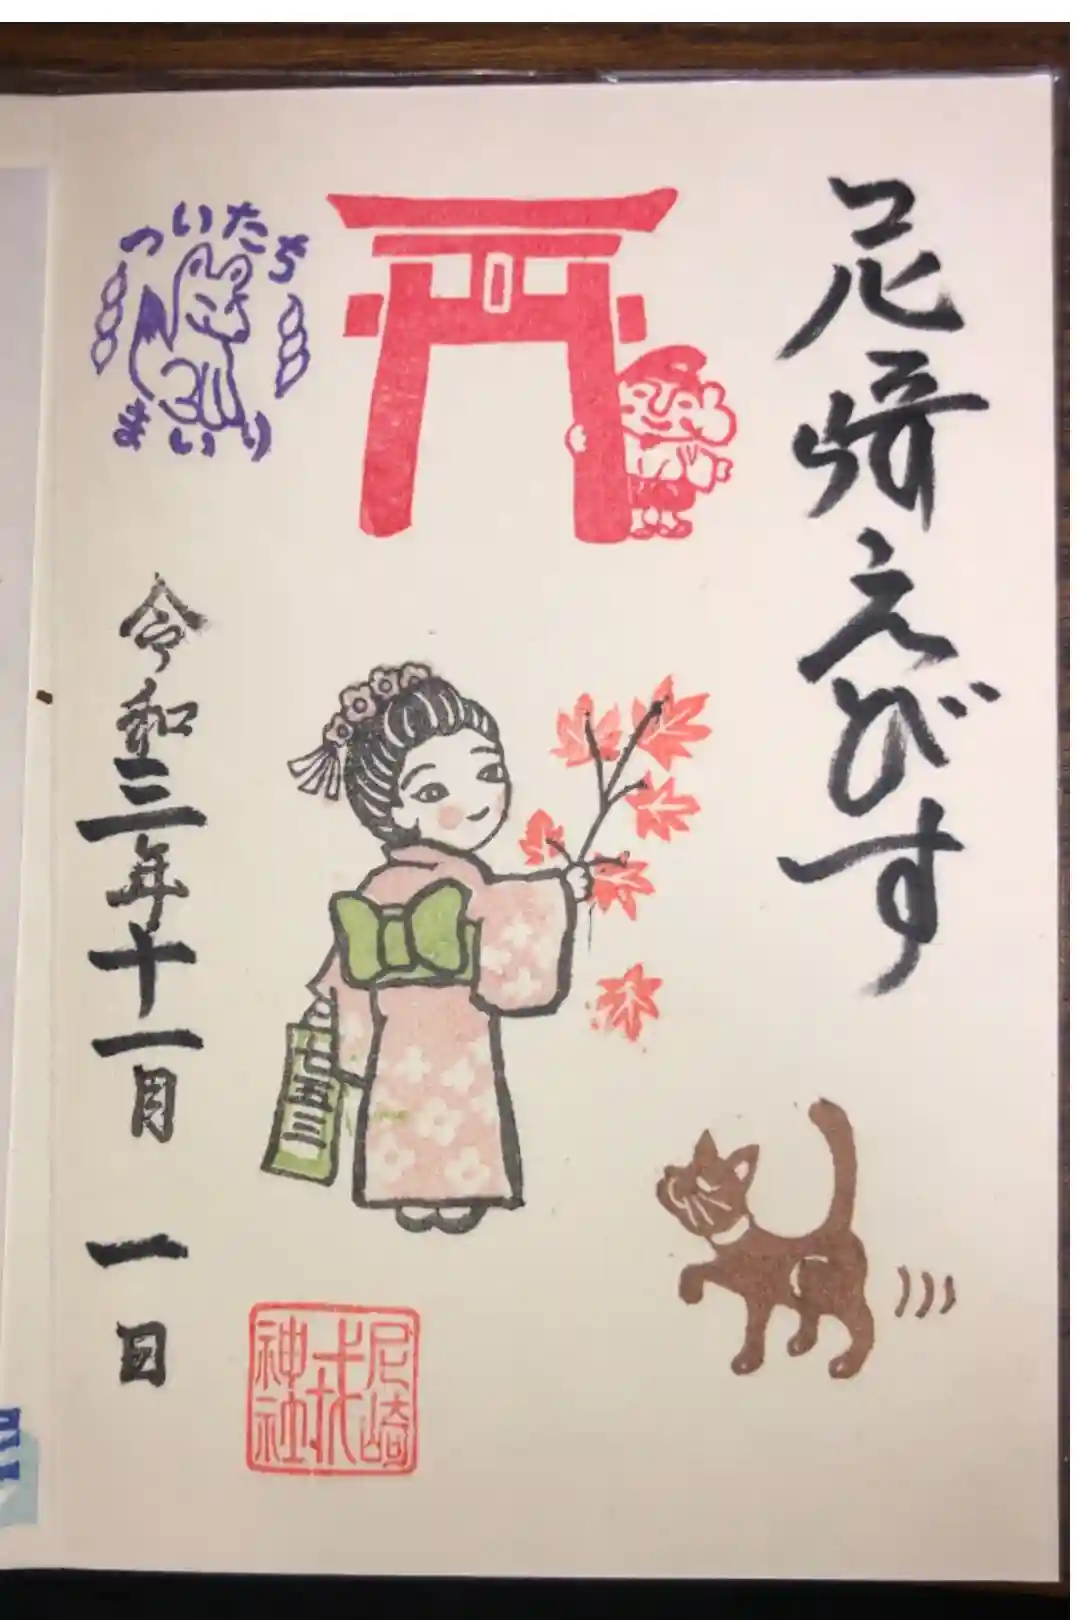 尼崎えびす
ついたち
まいり
七五三
令和三年十一月 一日
尼崎
戎
神社